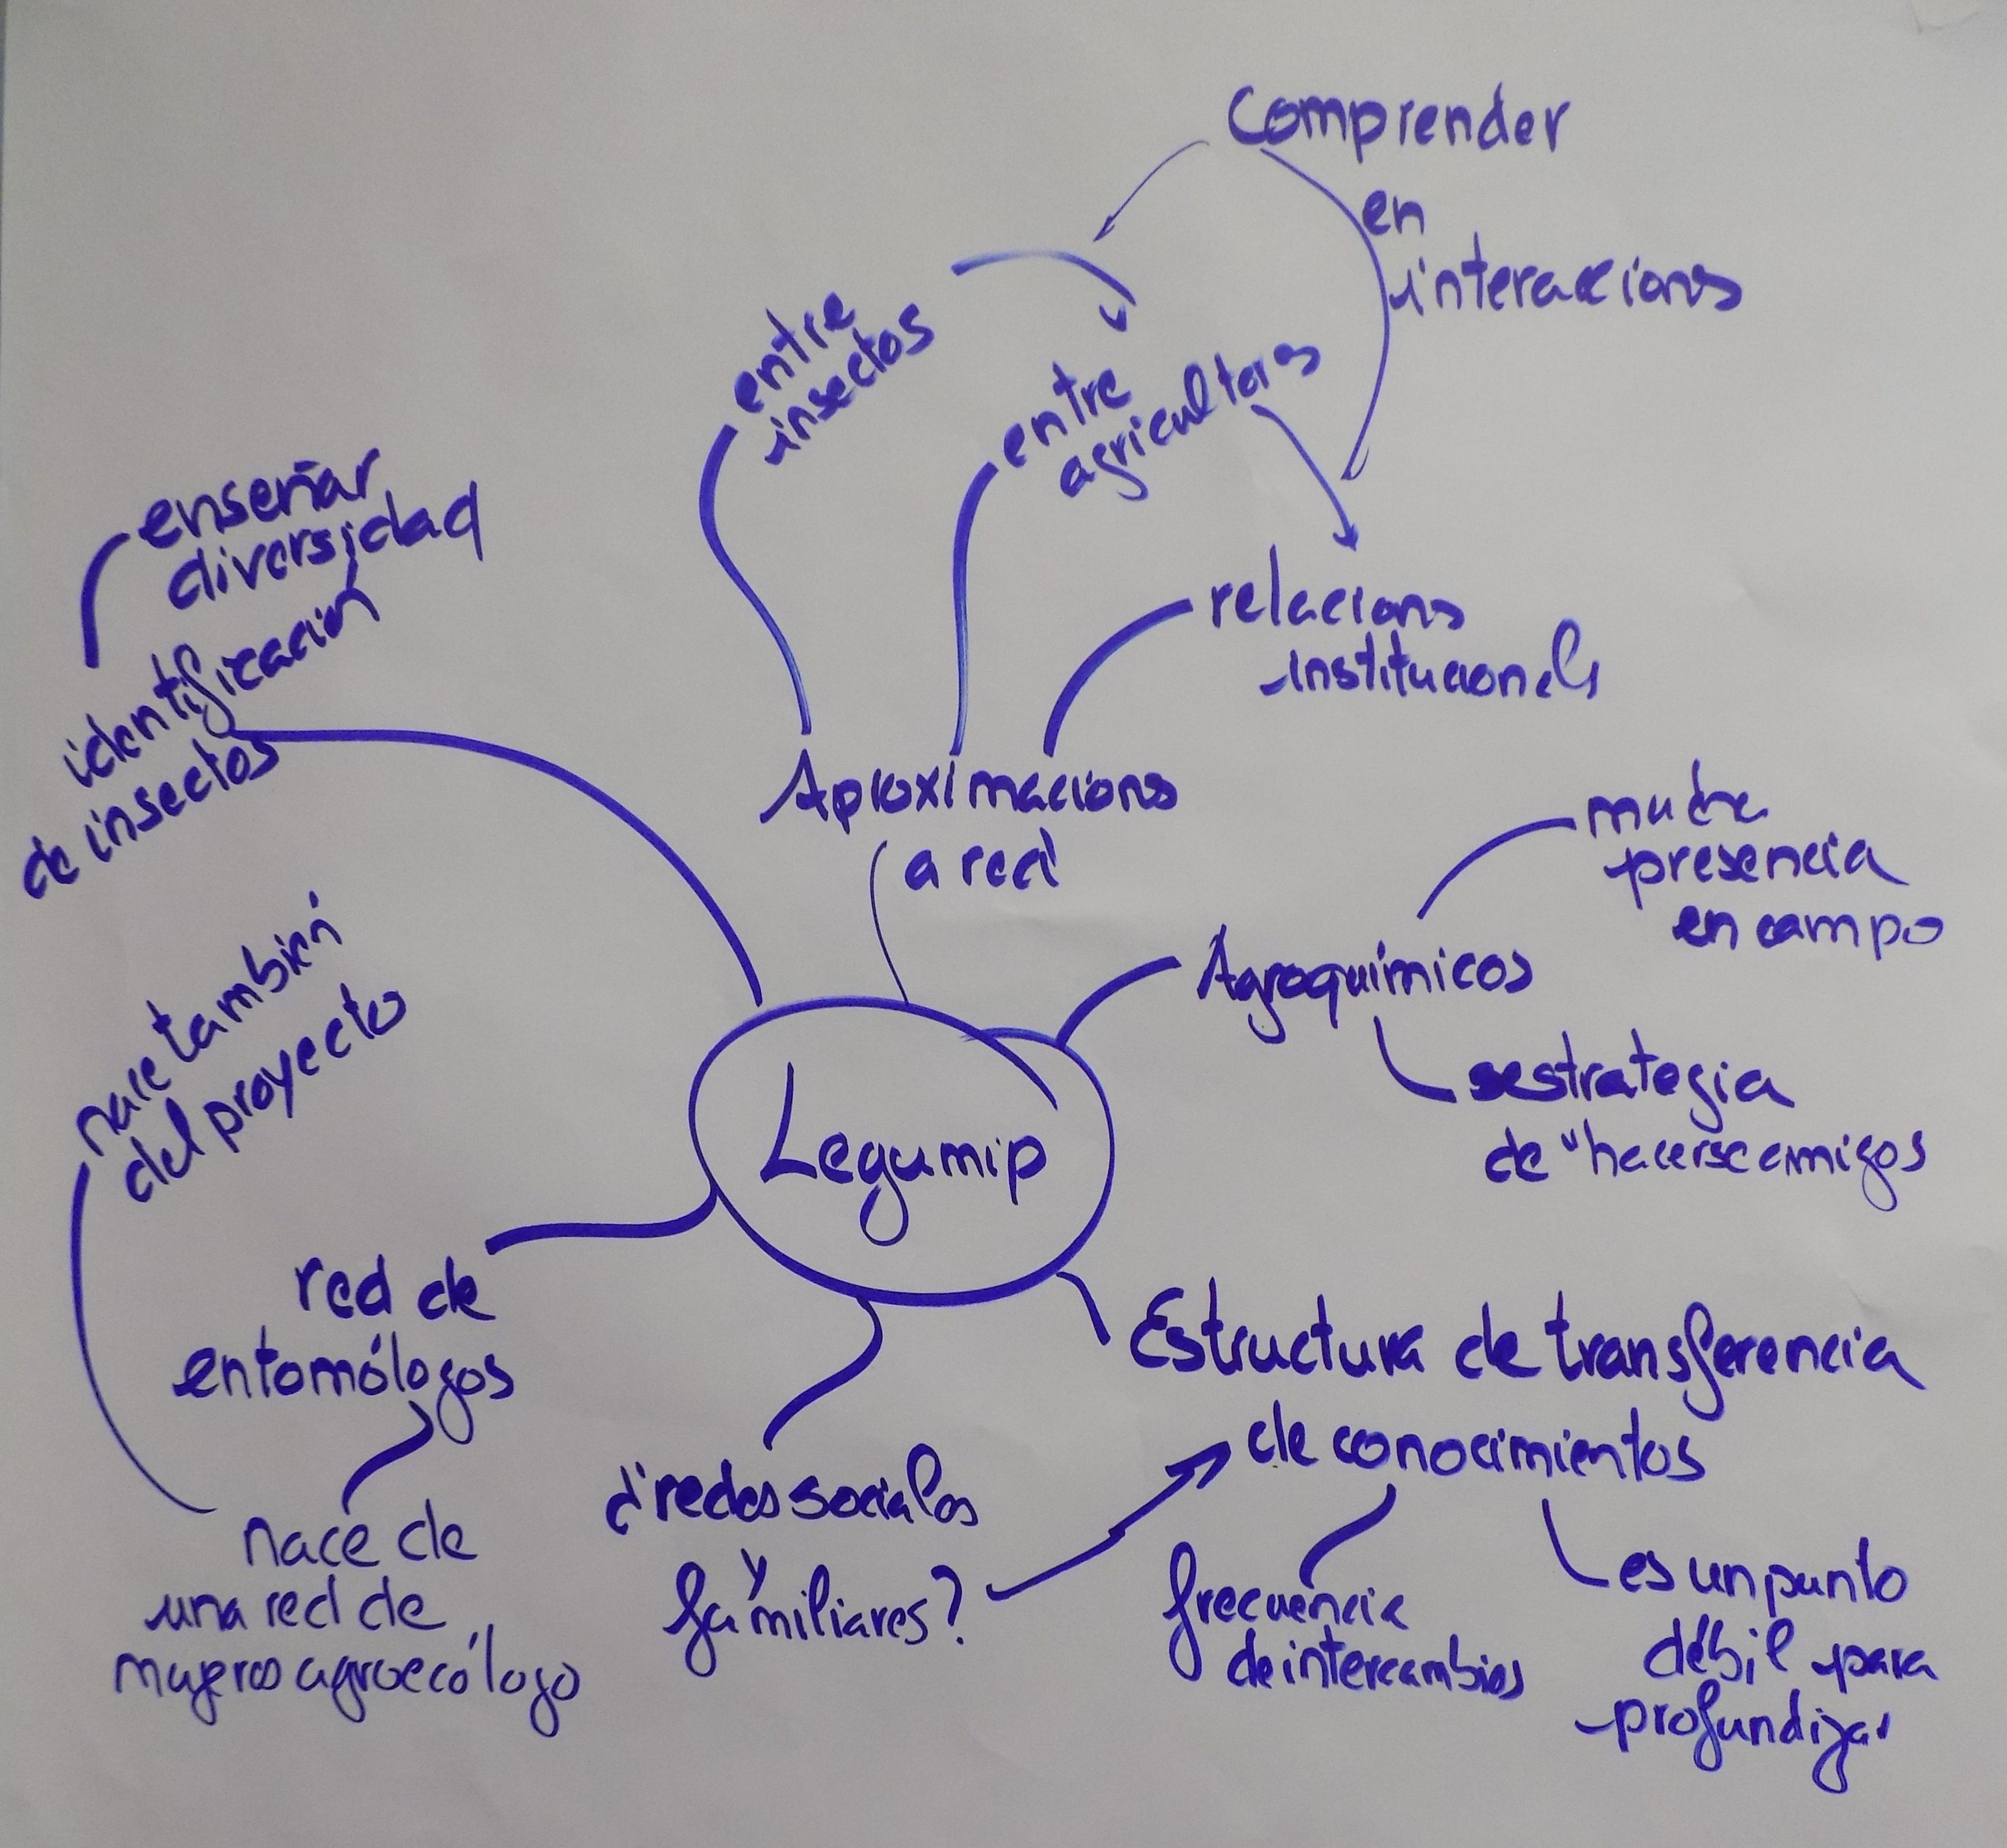 Comprender
en
interaccions
entre
insectos
entre
agricultors
relacions
institucionels
Aproximacions
a red
enseñar
diversidad
identificación
de insectos
presencia
en campo
Agroquímicos
estrategia
de "hacerse amigos
Legumip
nace también
del proyecto
red de
entomólogos
nace de
una red de
agroecólogo
¿redes sociales
y
familiares?
Estructura de transferencia
de conocimientos
frecuencia
de intercambios
es un punto
débil para
profundizar